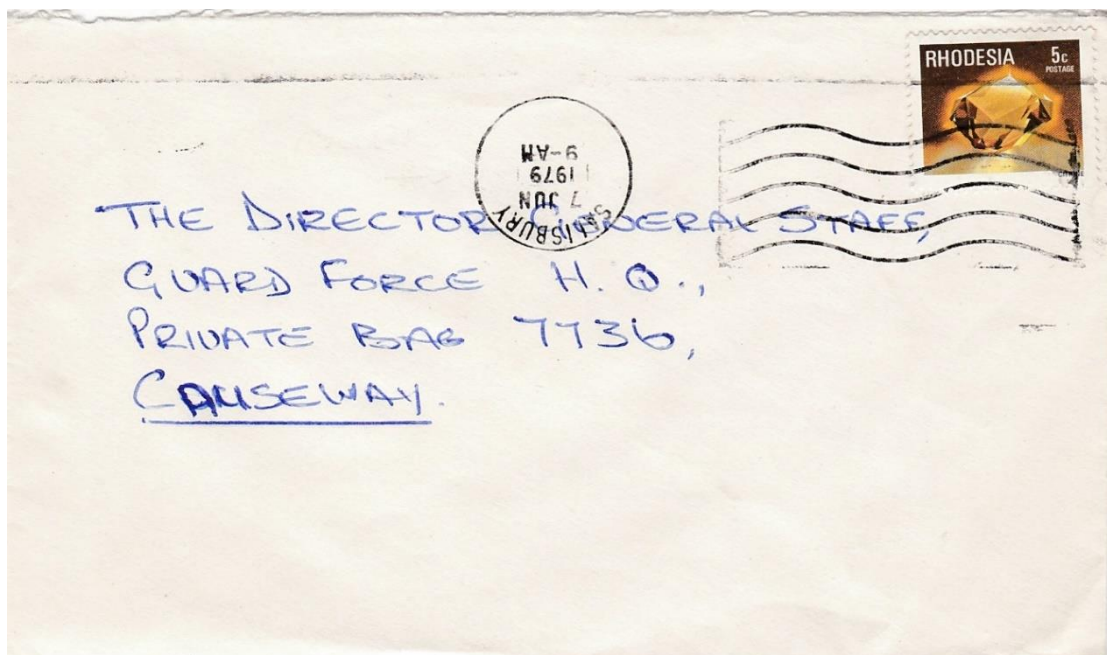 RHODESIA 5c
POSTAGE
SALISBURY
7 JUN
1979
9-AM
THE DIRECTOR GENERAL STAFF,
GUARD FORCE H.Q.,
PRIVATE BAG 7736,
CAUSEWAY.